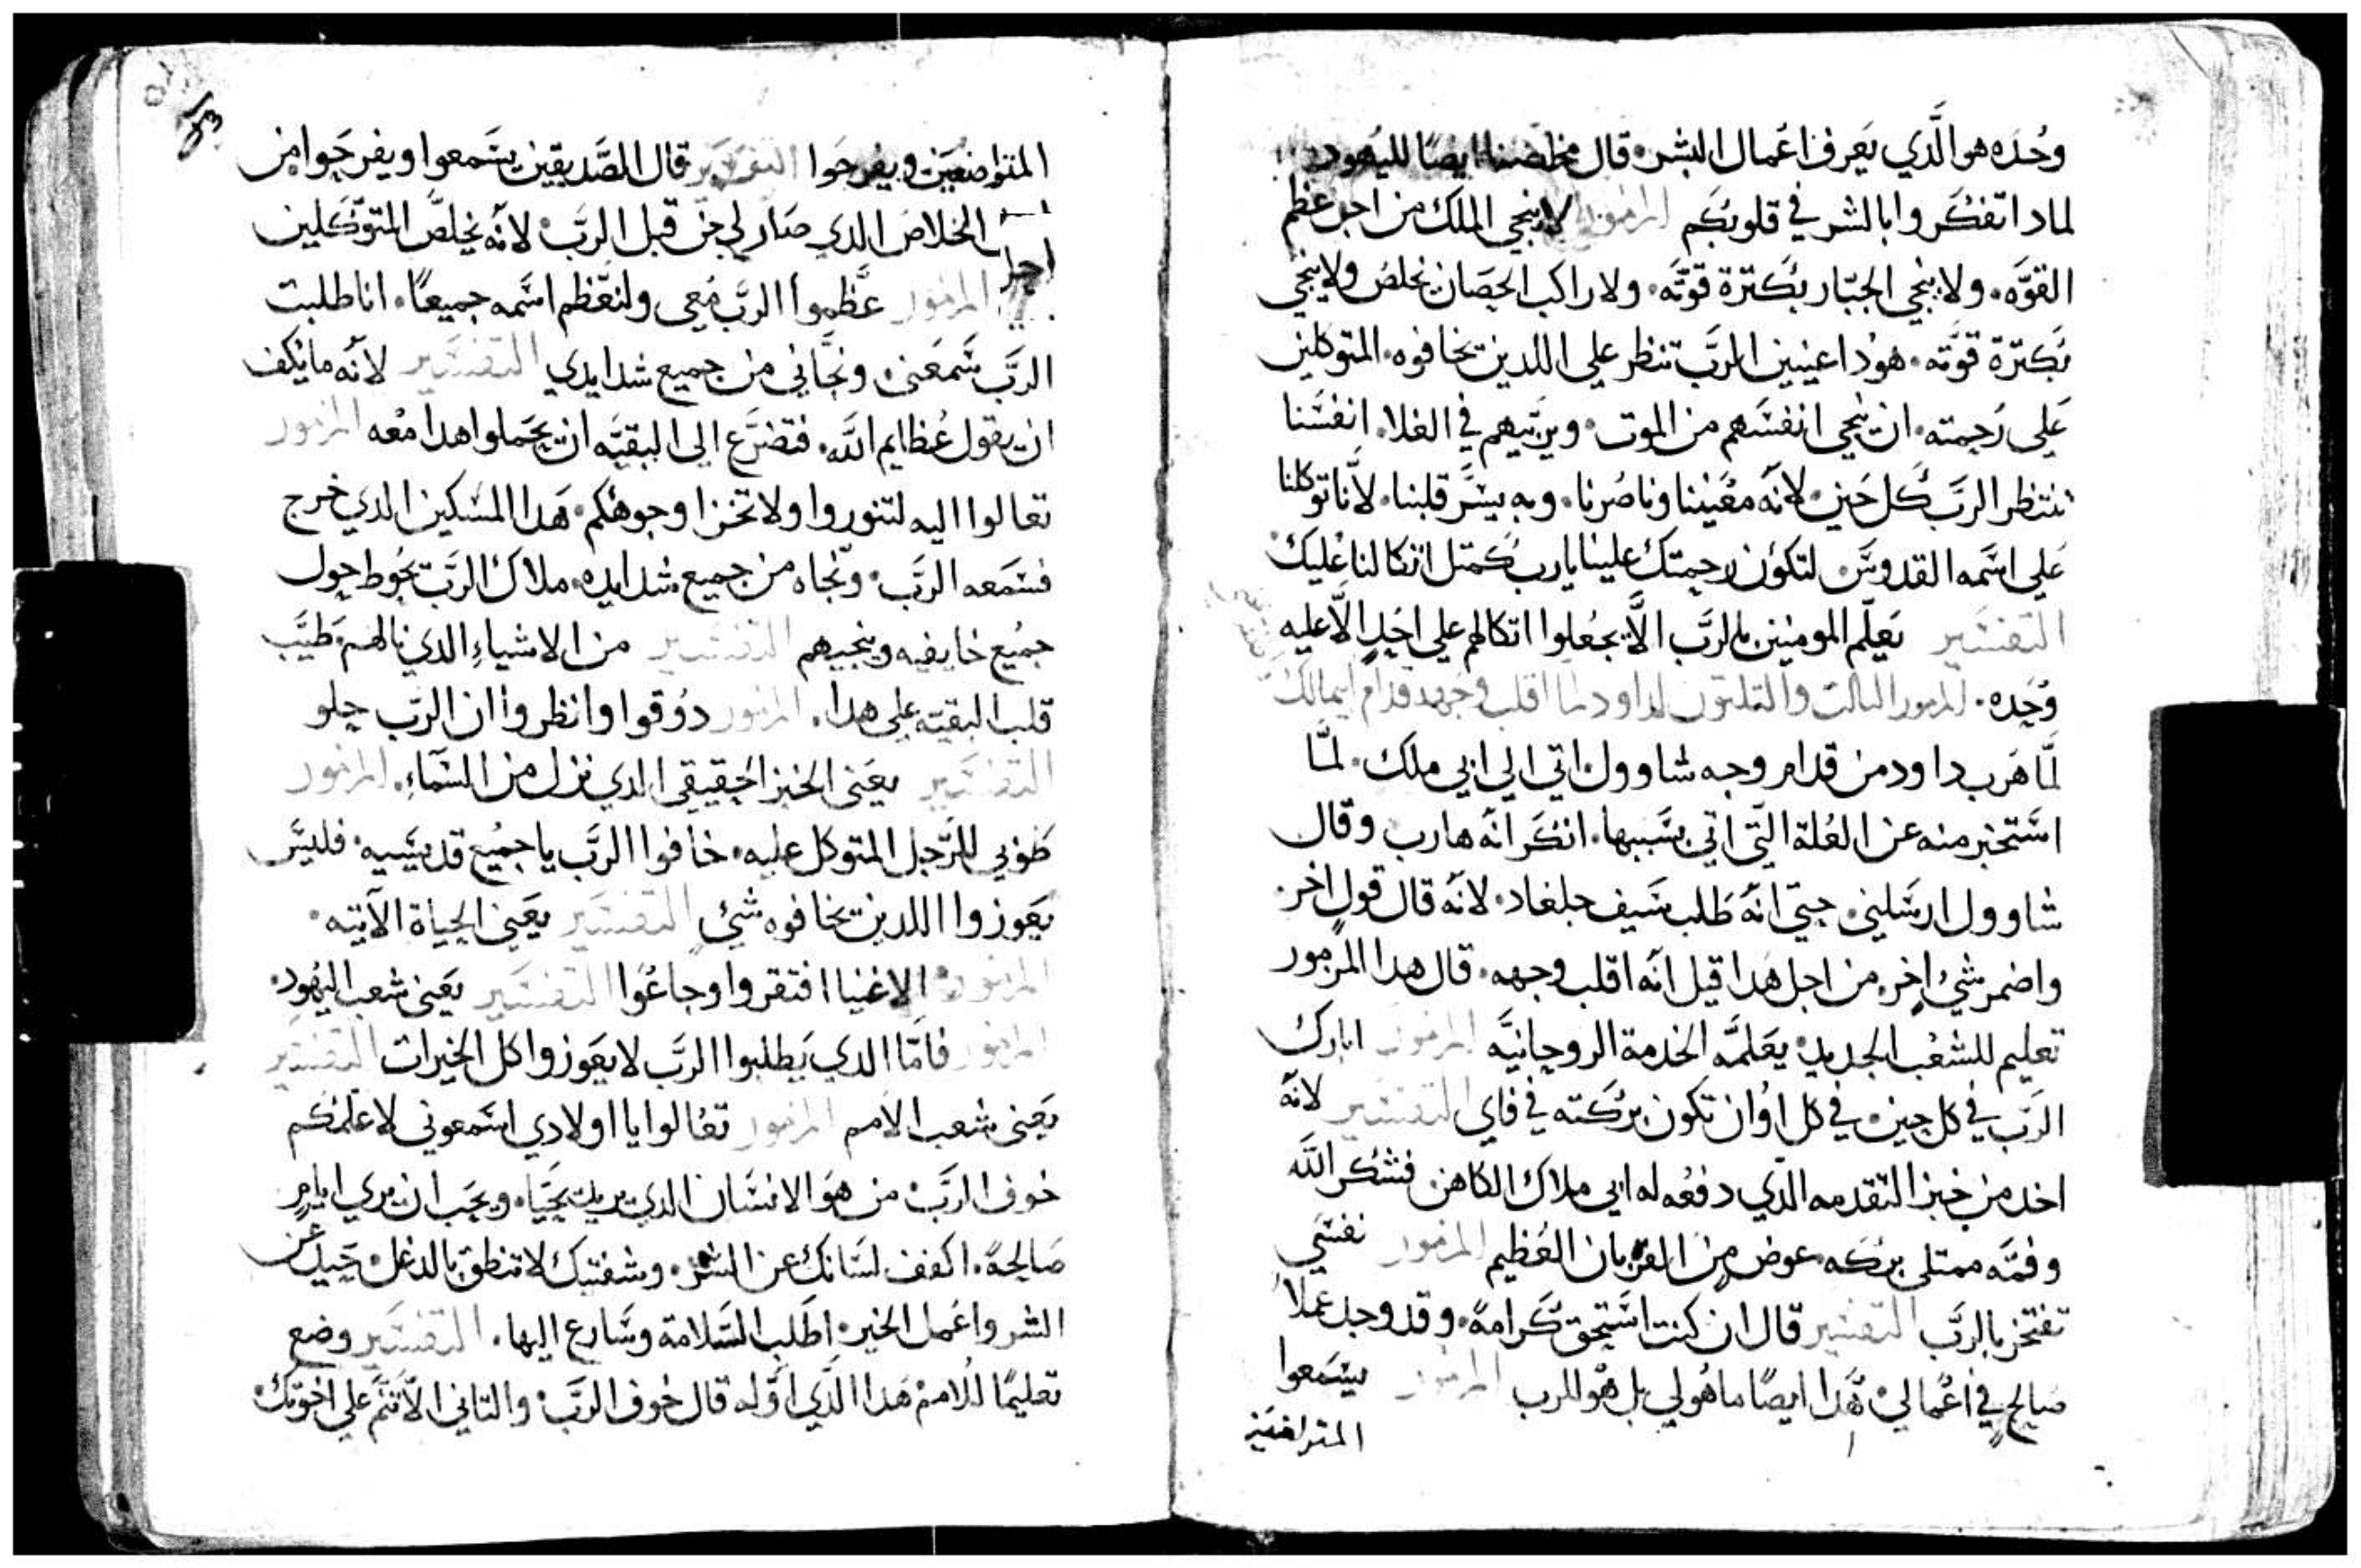 وحده هو الَّدي يعرف اعمال البشر. قال مخلصنا ايضًا لليهود
لمادا تفكروا بالشر في قلوبكم المزمور لا ينجي الملك من اجل عظم
القوَّه. ولا ينجي الجبّار بكترة قوتَه. ولا راكب الحصان يخلص ولا ينجي
بكترة قوَّته. هودا عينين الرَّب تنظر علي اللدين يخافوه. المتوكلين
علي رحمته. ان ينجي انفسهم من الموت. ويربّيهم في الغلا. انفسَنا
تنتظر الرَّب كل حين. لانَه معيننا وناصرنا. وبه يسَّر قلبنا. لأنَّا توكلنا
علي اسَمه القدوسَ. لتكون رحمتك علينا يا رب كمتل اتكالنا عليك
التفسَير يعلّم المومنين بالرَّب الَّا يجعلوا اتكالهم علي احدٍ الَّا عليه
وحده. المزمور التالت والتلتون لداود لما اقلب وجهه قدام ابيمالك
لمَّا هرب داود من قدام وجه شاوول اتي الي ابي ملك. لمَّا
اسَتخبر منه عن العلة التَّي اتي بسَببها. انكر انَه هارب وقال
شاوول ارسَلني. حتّي انَه طلب سَيف جلعاد. لانَه قال قولٍ اخر.
واضمر شيٍ اخر. من اجل هدا قيل انَه اقلب وجهه. قال هدا المزمور
تعليم للشعب الجديد. يعَلمَّه الخدمة الروحانيَّه المزمور ابارك
الرَّب في كل حين. في كل اوان تكون بركته في فاي التفسَير لانَه
اخد من خبز التقدمه الَّدي دفعه له ابي ملاك الكاهن فشكر اللَّه
وفمَّه ممتلي بركه. عوض من القربان العظيم المزمور نفسَي
تفتخر بالرَّب التفسير قال ان كنت اسَتحق كرامةً. وقد وجد عملًا
صالحٍ في اعمالي. هَدا ايضًا ما هو لي بل هو للرب المزمور يسَمعوا
المتواضعين
المتواضعين ويفرحوا التفسير قال الصَّديقين يسَمعوا ويفرحوا من
اجل الخلاص الدي صَار لي من قبل الرَّب. لانَه يخلصَّ المتوَّكلين
المزمور عظَّموا الرَّب معي ولنعَّظم اسَمه جميعًا. انا طلبت
الرَّب سَمعني. ونجَّاني من جميع شدايدي التفسَير لانَه ما يكف
ان يقول عظايم اللَّه. فتضرَّع الي البقيَّه ان يحملوا هدا معه المزمور
تعالوا اليه لتنوروا ولا تخزا وجوهكم. هَدا المسَكين الدي خرج
فسَمعه الرَّب. ونجَّاه من جميع شدايده. ملاك الرَّب يحوط حول
جميع خايفيه وينجيهم التفسَير من الاشياءِ الدي نالهم طيَّب
قلب البقيَه علي هدا. المزمور دوقوا وانظروا ان الرَّب حلو
التفسَير يعني الخبز الحقيقي الدي نزل من السَّماءِ. المزمور
طوبي للرَّجل المتوكل عليه. خافوا الرَّب يا جميع قديسَيه. فليسَ
يعوزوا اللدين يخافوه شيٍ التفسَير يعني الحياة الآتيه.
المزمور الاغنيا افتقروا وجاعوا التفسَير يعني شعب اليهود.
المزمور فامَّا الدي يطلبوا الرَّب لا يعوزوا كل الخيرات التفسير
يعني شعب الامم المزمور تعالوا يا اولادي اسَمعوني لاعلمكم
خوف الرَّب. من هَو الانسَان الدي يريد يحيَا. ويحب ان يري ايامٍ
صَالحةً. اكفف لسَانك عن الشر. وشفتيك لا تنطق بالدغل. حَيد عن
الشر واعمل الخير. اطلب السَّلامة وسَارع اليها. التفسَير وضع
تعليمًا للامم. هَدا الَّدي اوَّله قال خوف الرَّب. والتاني الَّا تنَّم علي اخوتك.